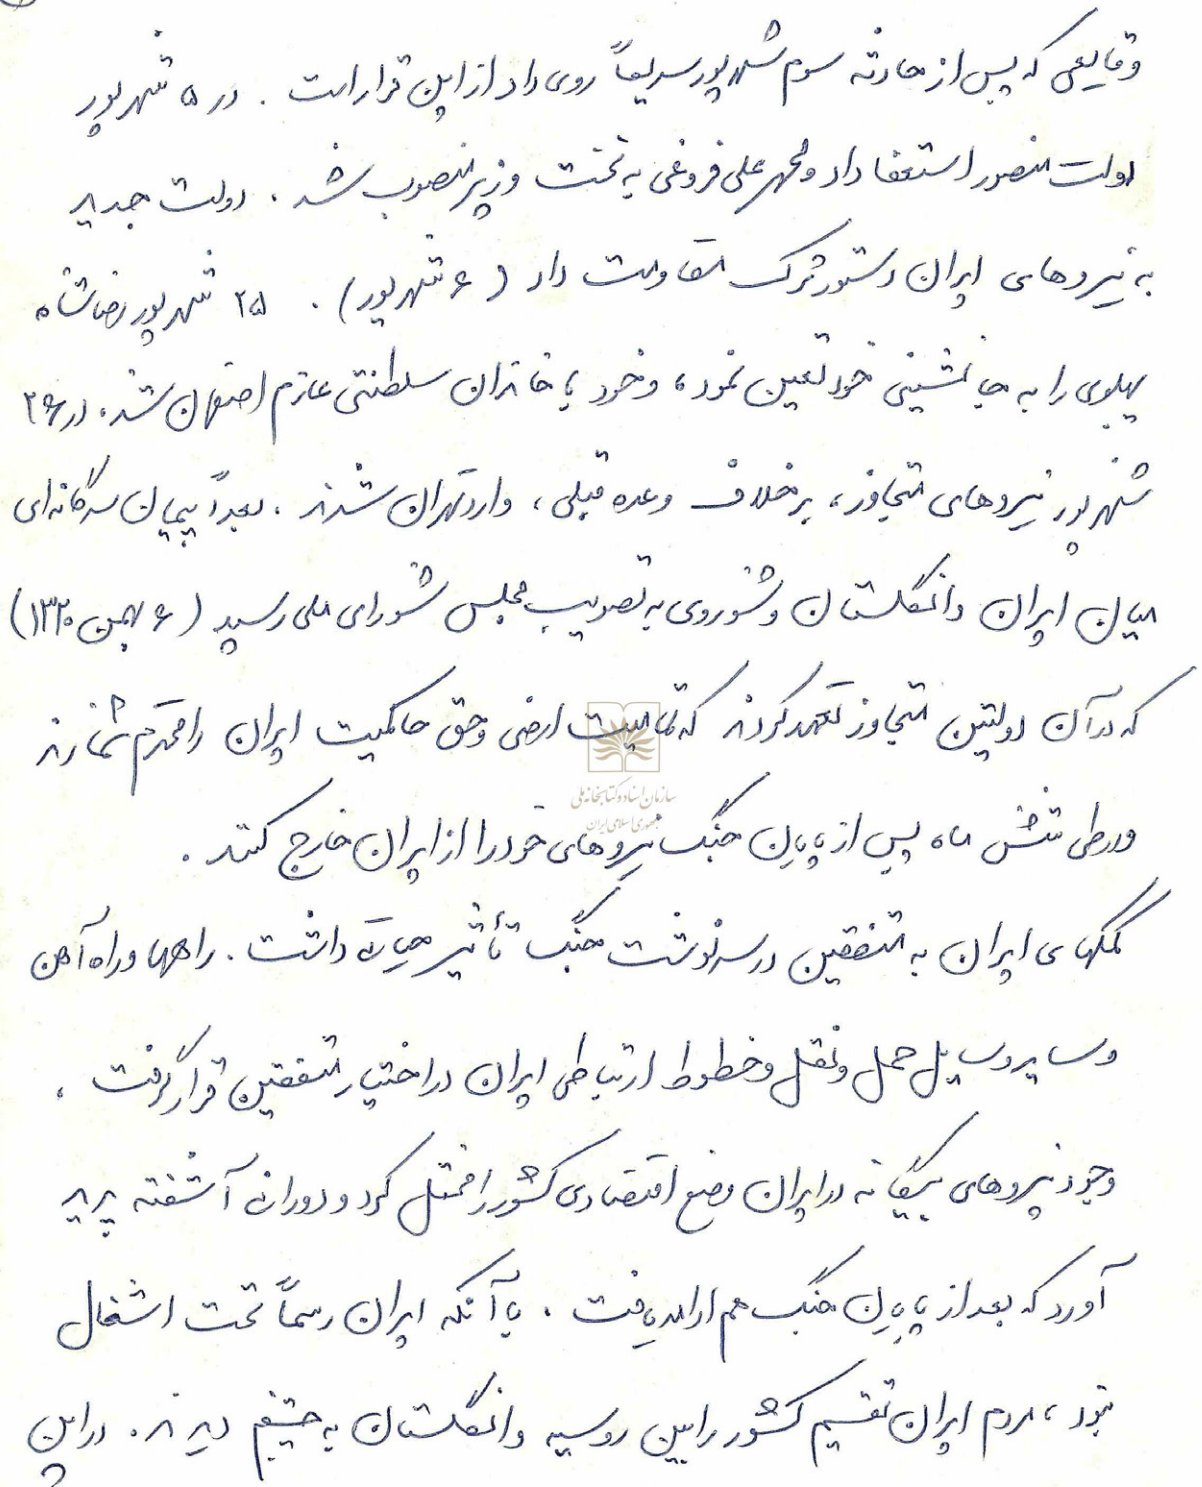 وقایعی که پس از حادثه سوم شهریور سریعاً روی داد از این قرار است . در ۵ شهریور
دولت منصور استعفا داد و محمد علی فروغی به نخست وزیر منصوب شد . دولت جدید
به نیروهای ایران دستور ترک مقاومت داد ( ۶ شهریور ) . ۲۵ شهریور رضاشاه
پهلوی را به جانشینی خود تعیین نمود ، و خود با خاندان سلطنتی عازم اصفهان شد . در ۲۶
شهریور نیروهای متجاوز ، برخلاف وعده قبلی ، وارد تهران شدند . بعداً پیمان سه گانه ای
میان ایران و انگلستان و شوروی به تصویب مجلس شورای ملی رسید ( ۶ بهمن ۱۳۲۰ )
که در آن دولتین متجاوز تعهد کردند که تمامیت ارضی و حق حاکمیت ایران را محترم شمارند
و در طی شش ماه پس از پایان جنگ نیروهای خود را از ایران خارج کنند .
سازمان اسناد و کتابخانه ملی
جمهوری اسلامی ایران
کمکهای ایران به متفقین در سرنوشت جنگ تأثیر حیاتی داشت . راهها و راه آهن
و سایر وسایل حمل و نقل و خطوط ارتباطی ایران در اختیار متفقین قرار گرفت .
وجود نیروهای بیگانه در ایران وضع اقتصادی کشور را مختل کرد و دورانی آشفته پدید
آورد که بعد از پایان جنگ هم ادامه یافت . با آنکه ایران رسماً تحت اشغال
نبود ، مردم ایران تقسیم کشور را بین روسیه و انگلستان به چشم دیدند . در این